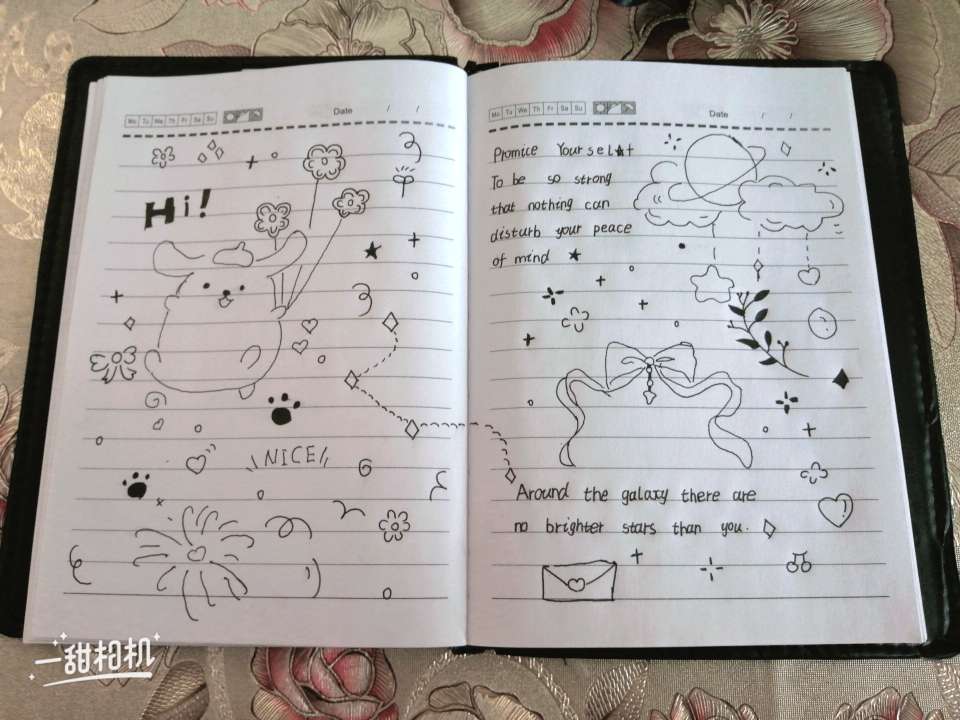 Mo Tu We Th Fr Sa Su
Date / /
Hi!
NICE
Mo Tu We Th Fr Sa Su
Date / /
Promice Yourselt
To be so strong
that nothing can
disturb your peace
of mind
Around the galaxy there are
no brighter stars than you.
一甜相机